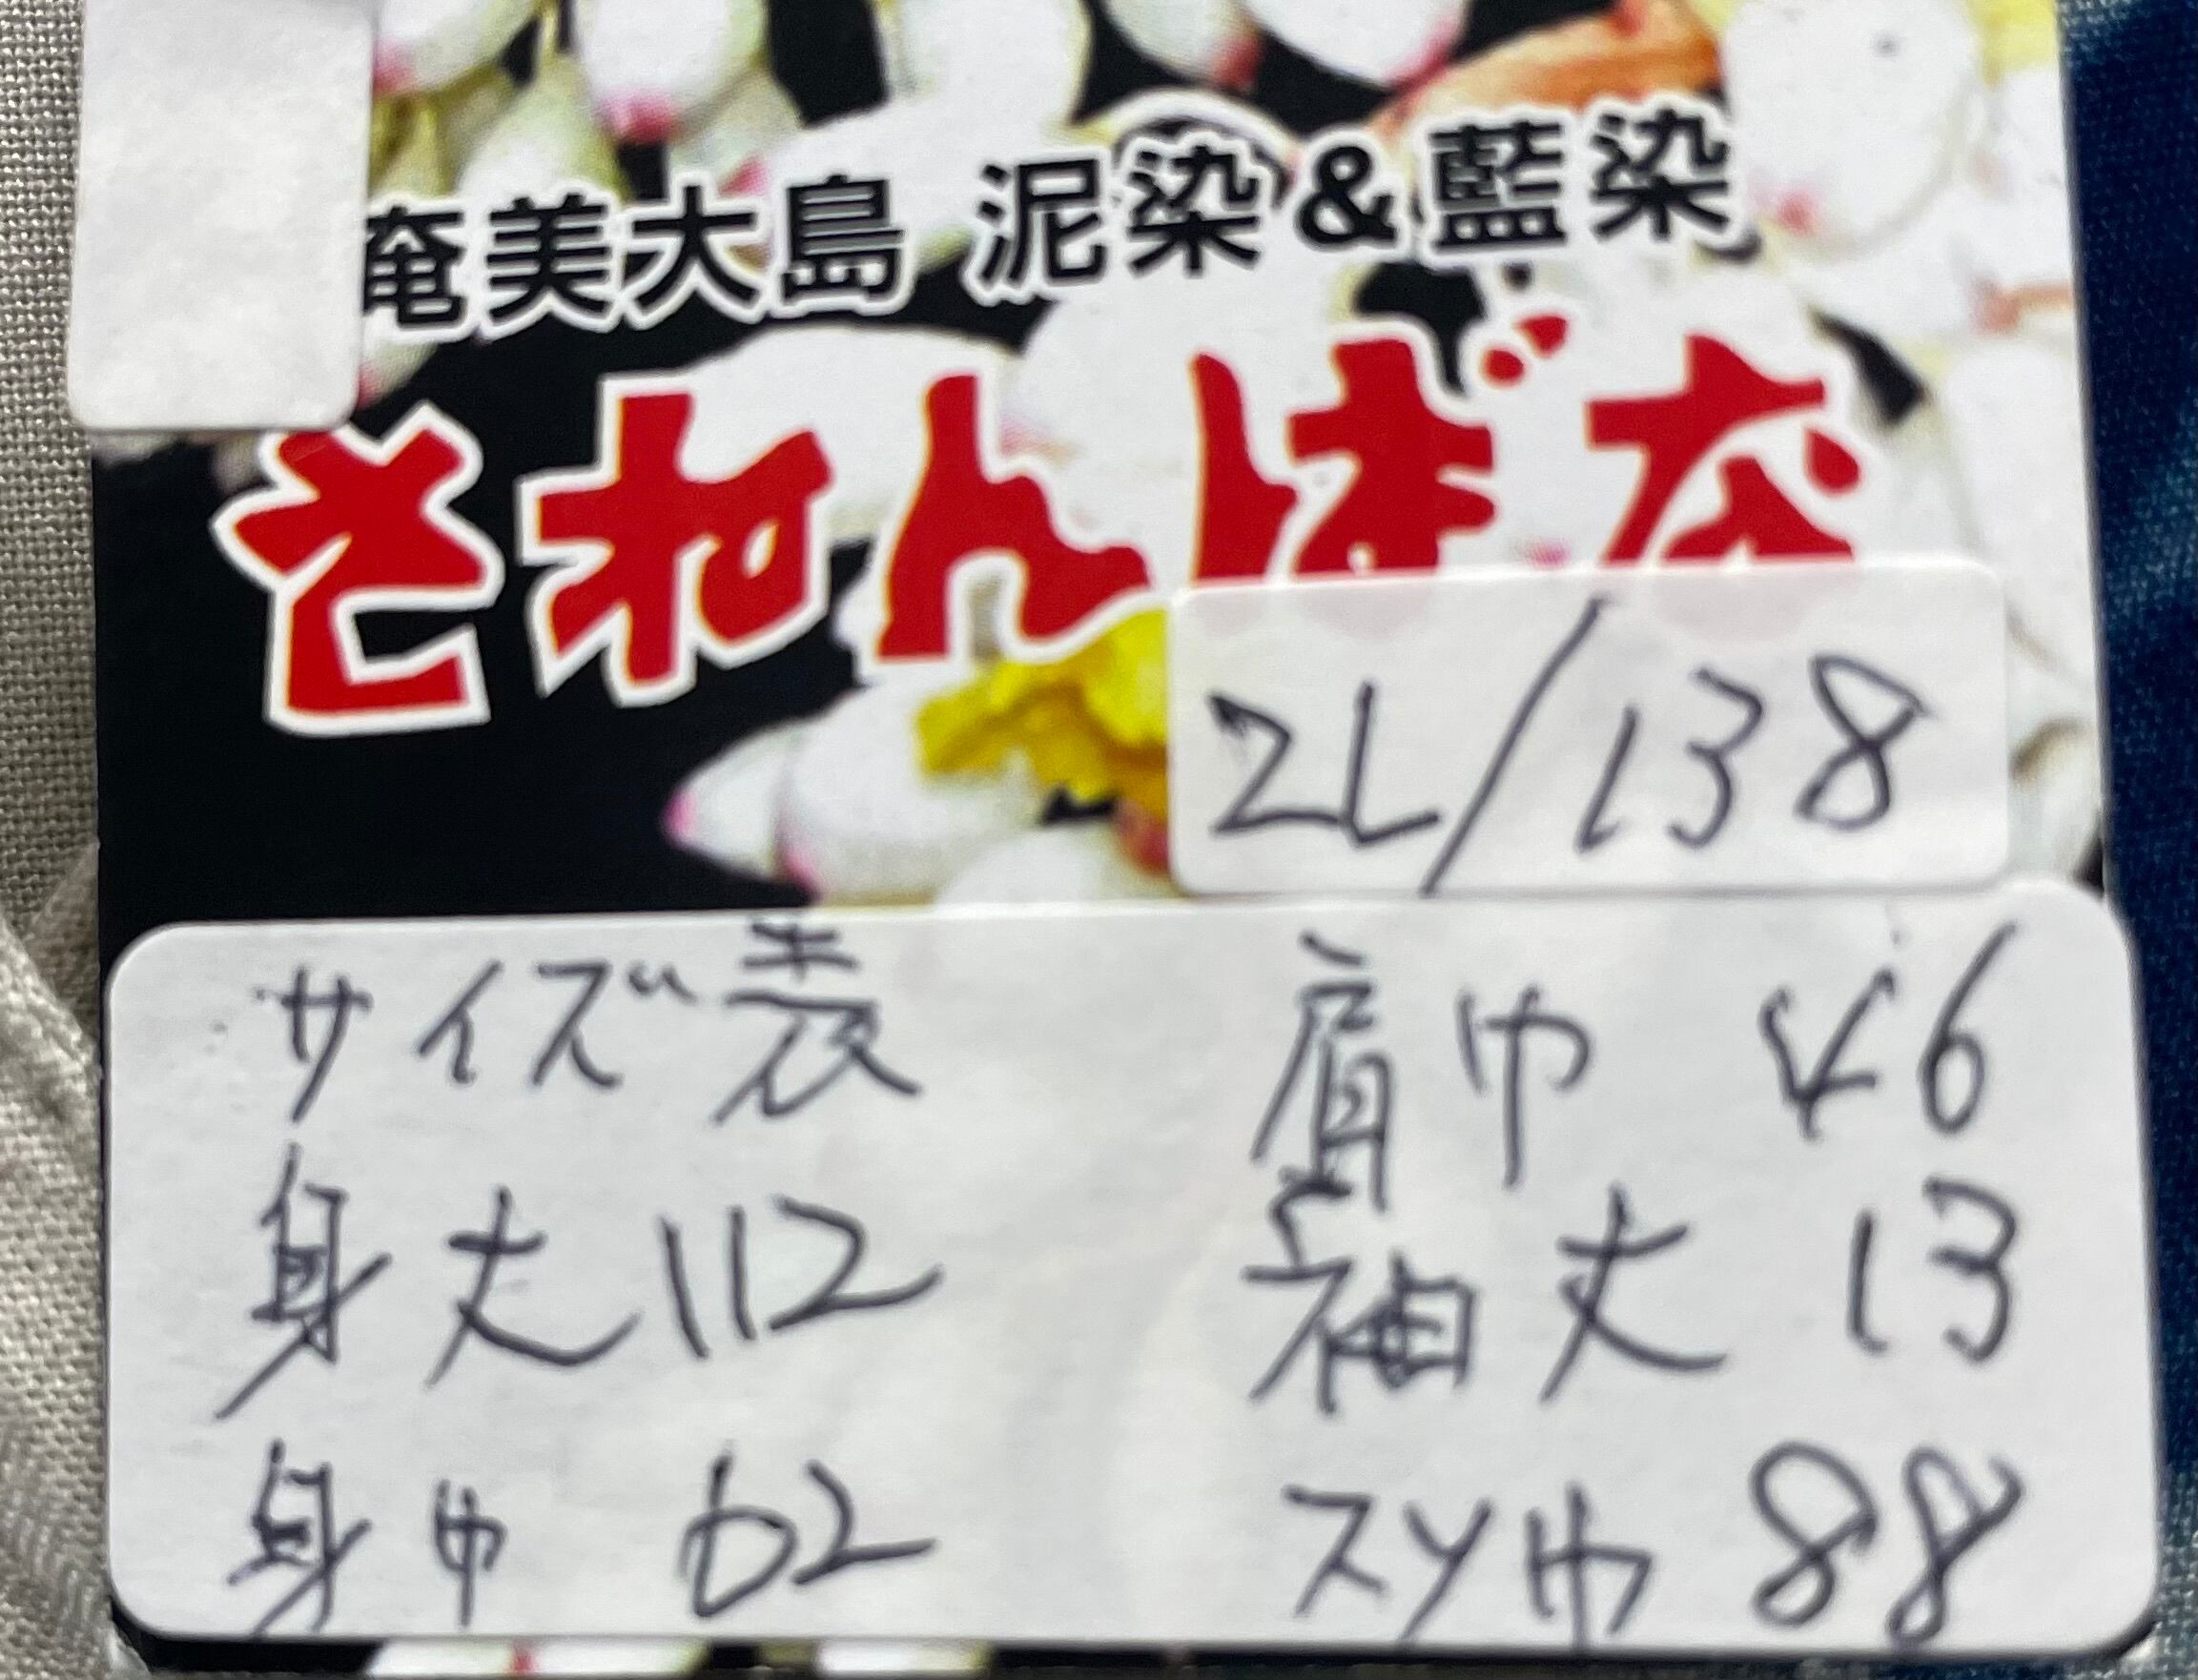 奄美大島 泥染&藍染
さねんばな
2L/138
サイズ表
身丈 112
身巾 62
肩巾 46
袖丈 13
スソ巾 88